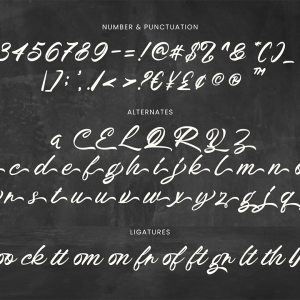 NUMBER & PUNCTUATION
3456789-=!@#$% ^& *()_
|];',./<>?€¥£¢©®™
ALTERNATES
a CELQRYZ
c d e f g h i j k l m n o
r s t u v w x y z g j q
LIGATURES
oo ck tt om on fr of ft gr lt th